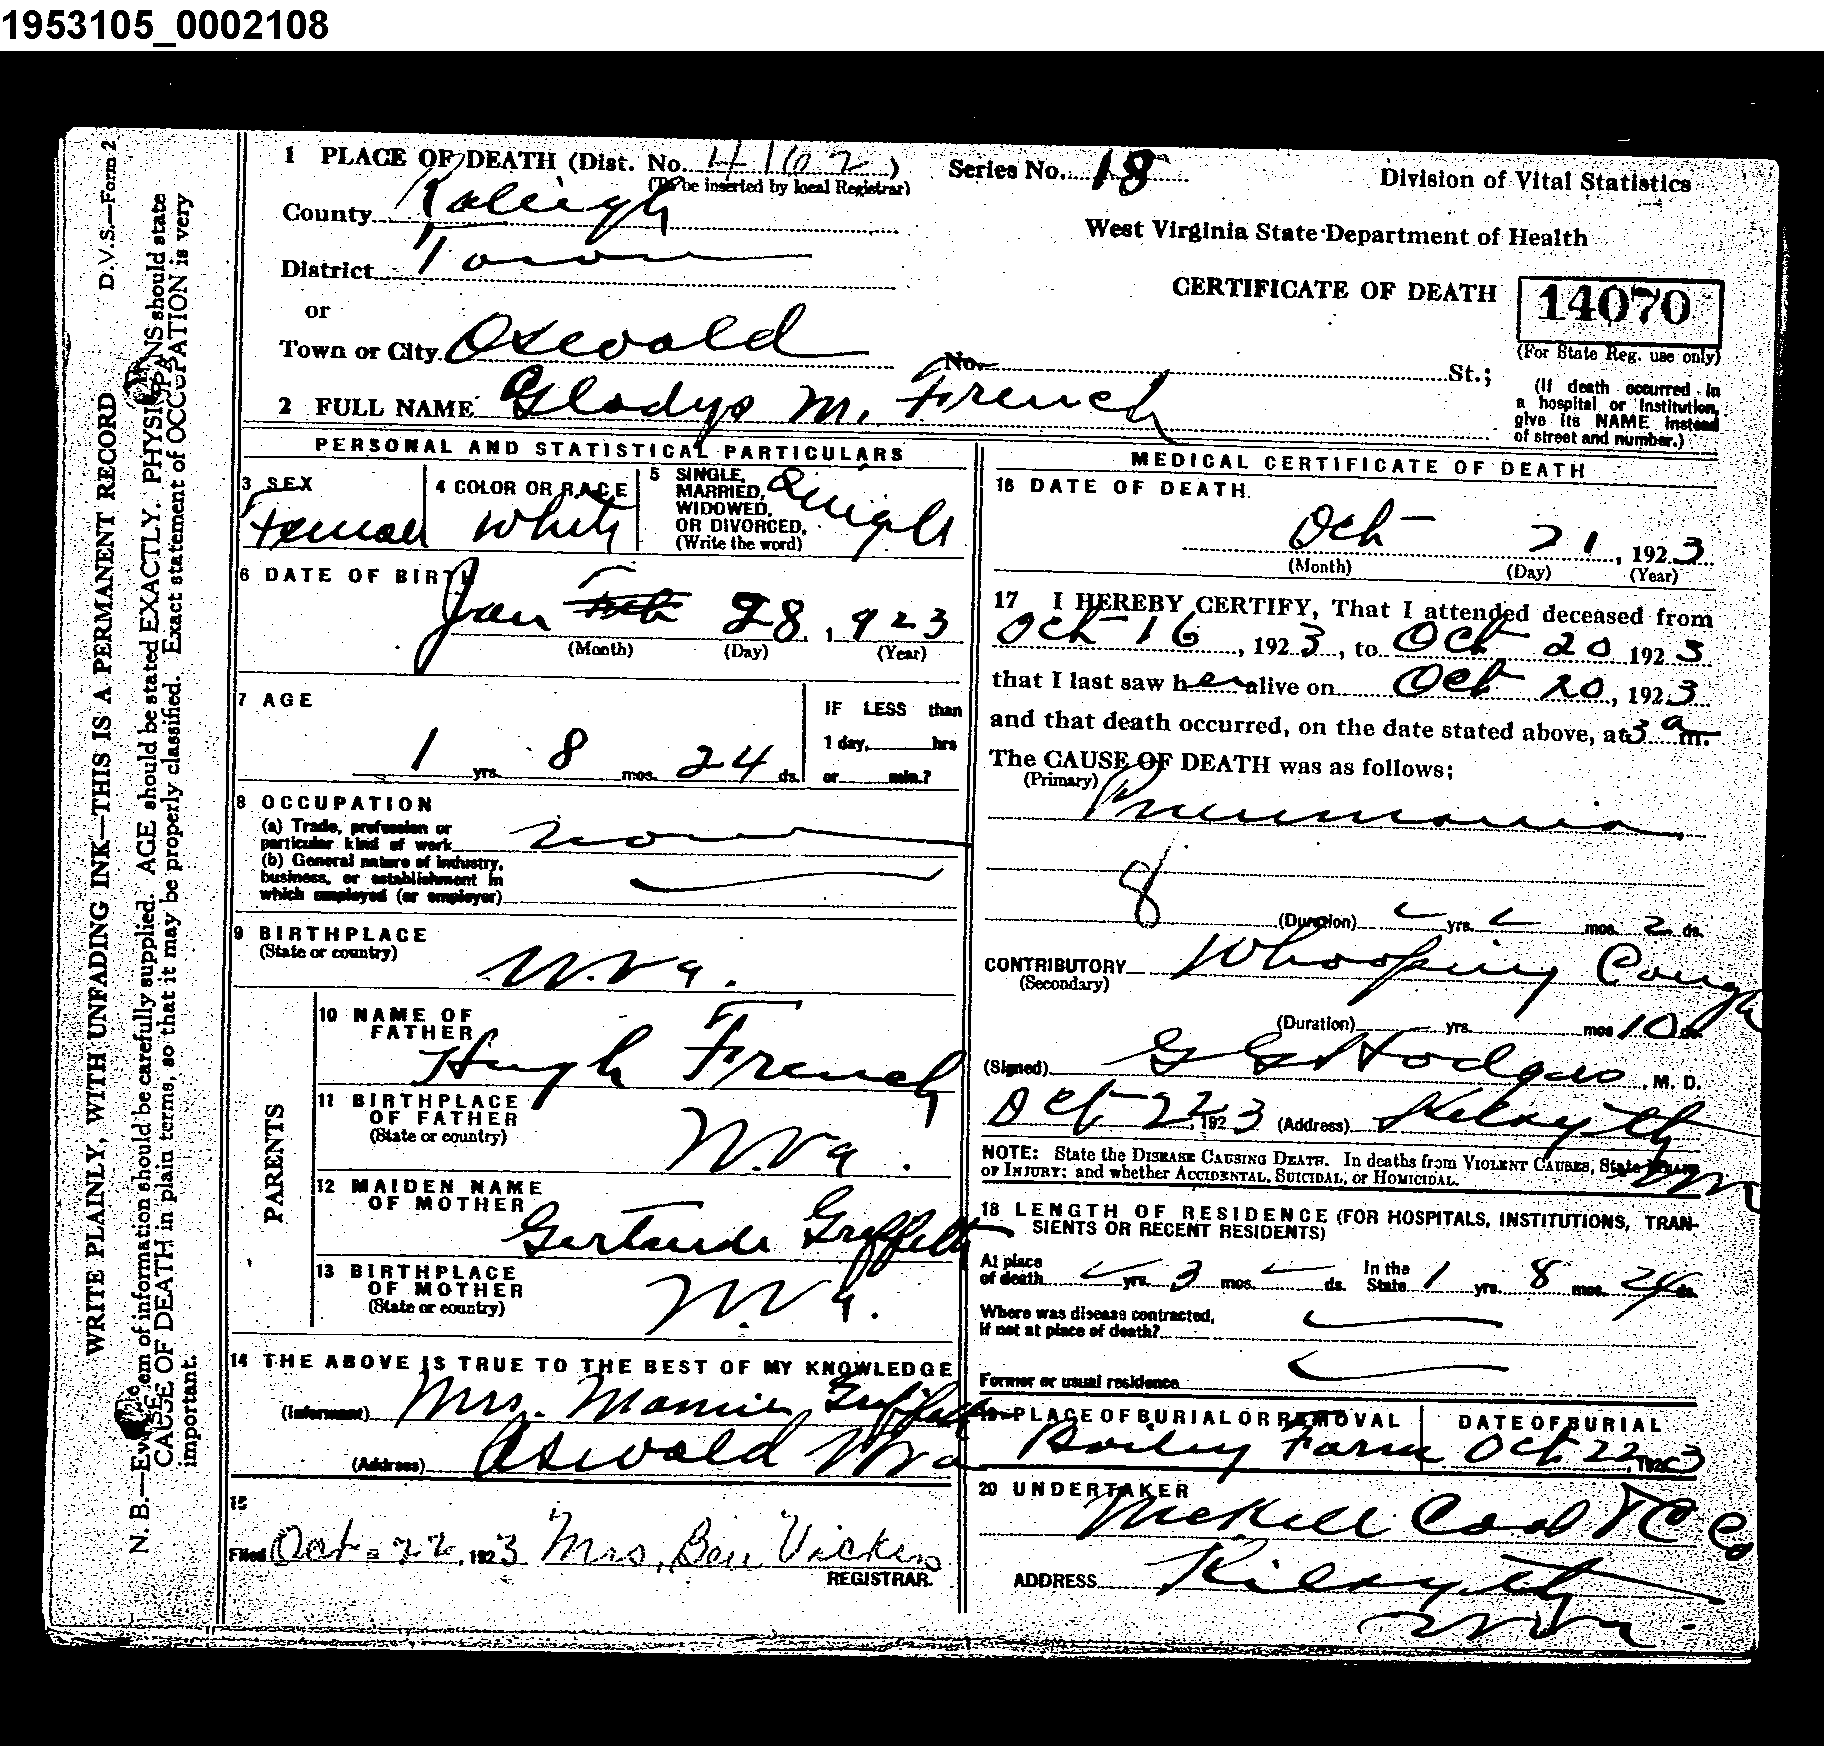 1953105_0002108
D.V.S.—Form 2
WRITE PLAINLY, WITH UNFADING INK—THIS IS A PERMANENT RECORD
N. B.—Every item of information should be carefully supplied. AGE should be stated EXACTLY. PHYSICIANS should state
CAUSE OF DEATH in plain terms, so that it may be properly classified. Exact statement of OCCUPATION is very
important.
1 PLACE OF DEATH (Dist. No. 4102)
(To be inserted by local Registrar)
Series No. 18
Division of Vital Statistics
County Raleigh
West Virginia State Department of Health
District Town
CERTIFICATE OF DEATH 14070
or
(For State Reg. use only)
Town or City Oswald No. St.;
(If death occurred in
a hospital or institution,
give its NAME instead
of street and number.)
2 FULL NAME Gladys M. French
PERSONAL AND STATISTICAL PARTICULARS
3 SEX
Female
4 COLOR OR RACE
White
5 SINGLE,
MARRIED,
WIDOWED,
OR DIVORCED,
(Write the word)
Single
6 DATE OF BIRTH
Jan 28, 1923
(Month) (Day) (Year)
7 AGE
1 yrs. 8 mos. 24 ds.
IF LESS than
1 day, hrs
or min.?
8 OCCUPATION
(a) Trade, profession or
particular kind of work none
(b) General nature of industry,
business, or establishment in
which employed (or employer)
9 BIRTHPLACE
(State or country)
W.Va.
PARENTS
10 NAME OF
FATHER
Hugh French
11 BIRTHPLACE
OF FATHER
(State or country)
W.Va.
12 MAIDEN NAME
OF MOTHER
Gertrude Griffith
13 BIRTHPLACE
OF MOTHER
(State or country)
W.Va.
14 THE ABOVE IS TRUE TO THE BEST OF MY KNOWLEDGE
(Informant) Mrs. Mamie Griffith
(Address) Oswald W Va
15
Filed Oct - 22, 1923 Mrs. Ben Vickers
REGISTRAR.
MEDICAL CERTIFICATE OF DEATH
16 DATE OF DEATH.
Oct 21, 1923
(Month) (Day) (Year)
17 I HEREBY CERTIFY, That I attended deceased from
Oct 16, 1923, to Oct 20 1923
that I last saw her alive on Oct 20, 1923
and that death occurred, on the date stated above, at 3 a m.
The CAUSE OF DEATH was as follows:
(Primary) Pneumonia
8 (Duration) yrs. mos. 2 ds.
CONTRIBUTORY Whooping Cough
(Secondary)
(Duration) yrs. mos 10 ds.
(Signed) G G Hodges, M. D.
Oct 22, 1923 (Address) Kilsyth
W Va
NOTE: State the DISEASE CAUSING DEATH. In deaths from VIOLENT CAUSES, State MEANS
OF INJURY; and whether ACCIDENTAL, SUICIDAL, or HOMICIDAL.
18 LENGTH OF RESIDENCE (FOR HOSPITALS, INSTITUTIONS, TRAN-
SIENTS OR RECENT RESIDENTS)
At place
of death yrs. 3 mos. ds. In the
State 1 yrs. 8 mos. 24 ds.
Where was disease contracted,
if not at place of death?
Former or usual residence
19 PLACE OF BURIAL OR REMOVAL
Bailey Farm
DATE OF BURIAL
Oct 22, 1923
20 UNDERTAKER
McKell Coal & C Co
ADDRESS Kilsyth
W Va.